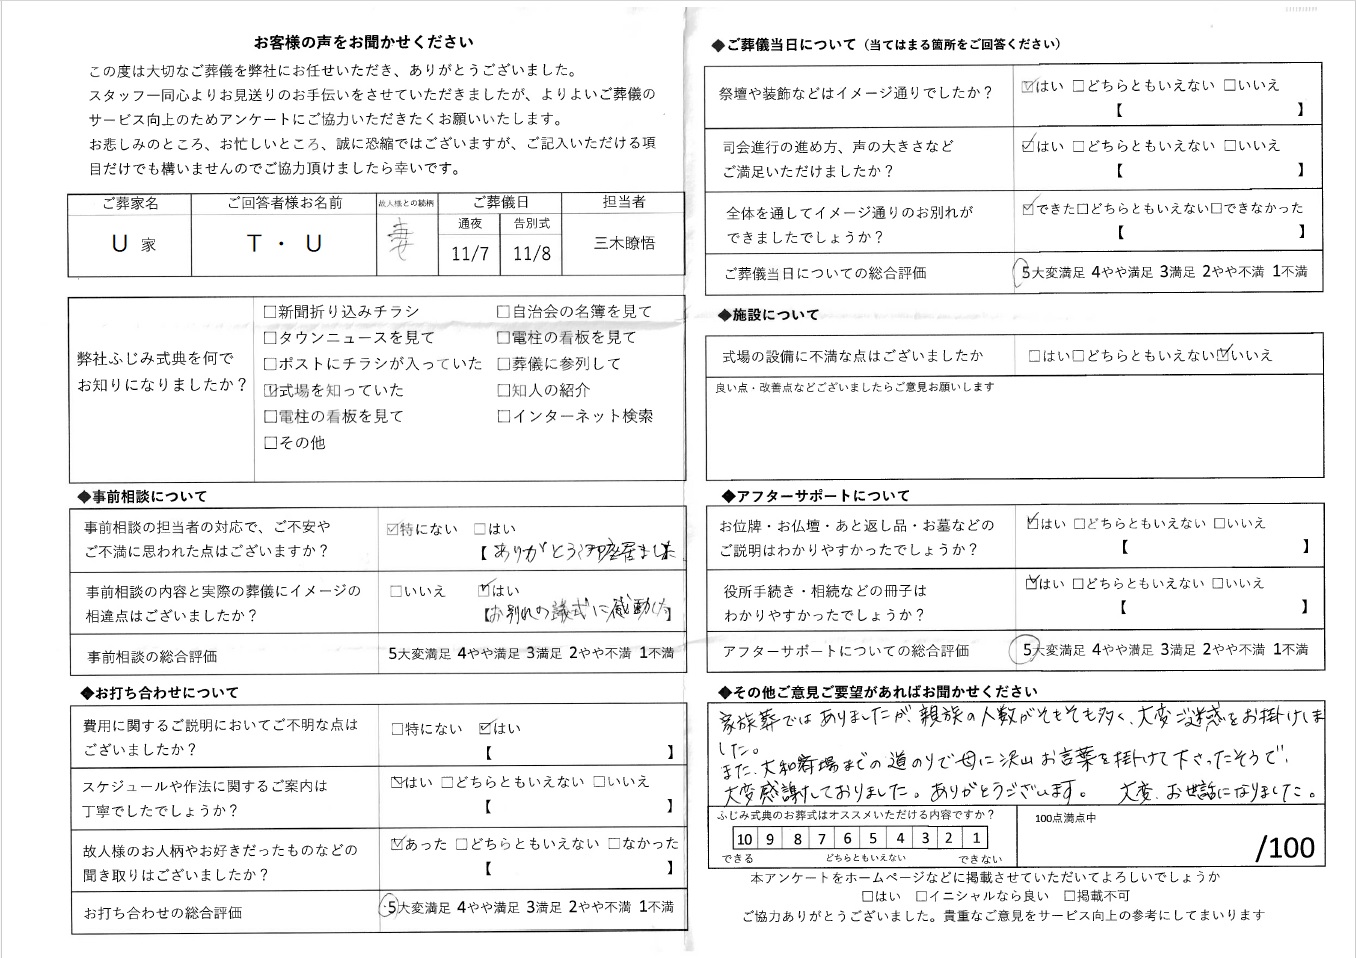 お客様の声をお聞かせください
この度は大切なご葬儀を弊社にお任せいただき、ありがとうございました。
スタッフ一同心よりお見送りのお手伝いをさせていただきましたが、よりよいご葬儀の
サービス向上のためアンケートにご協力いただきたくお願いいたします。
お悲しみのところ、お忙しいところ、誠に恐縮ではございますが、ご記入いただける項
目だけでも構いませんのでご協力頂けましたら幸いです。
ご葬家名 ご回答者様お名前 故人様との続柄 ご葬儀日 担当者
通夜 告別式
U 家 T・U 妻 11/7 11/8 三木瞭悟
弊社ふじみ式典を何で
お知りになりましたか？
□新聞折り込みチラシ □自治会の名簿を見て
□タウンニュースを見て □電柱の看板を見て
□ポストにチラシが入っていた □葬儀に参列して
☑式場を知っていた □知人の紹介
□電柱の看板を見て □インターネット検索
□その他
◆事前相談について
事前相談の担当者の対応で、ご不安や
ご不満に思われた点はございますか？
☑特にない □はい
【ありがとう御座居ました】
事前相談の内容と実際の葬儀にイメージの
相違点はございましたか？
□いいえ ☑はい
【お別れの議式に感動した】
事前相談の総合評価 5大変満足 4やや満足 3満足 2やや不満 1不満
◆お打ち合わせについて
費用に関するご説明においてご不明な点は
ございましたか？
□特にない ☑はい
【 】
スケジュールや作法に関するご案内は
丁寧でしたでしょうか？
☑はい □どちらともいえない □いいえ
【 】
故人様のお人柄やお好きだったものなどの
聞き取りはございましたか？
☑あった □どちらともいえない □なかった
【 】
お打ち合わせの総合評価 5大変満足 4やや満足 3満足 2やや不満 1不満
◆ご葬儀当日について（当てはまる箇所をご回答ください）
祭壇や装飾などはイメージ通りでしたか？
☑はい □どちらともいえない □いいえ
【 】
司会進行の進め方、声の大きさなど
ご満足いただけましたか？
☑はい □どちらともいえない □いいえ
【 】
全体を通してイメージ通りのお別れが
できましたでしょうか？
☑できた□どちらともいえない□できなかった
【 】
ご葬儀当日についての総合評価 5大変満足 4やや満足 3満足 2やや不満 1不満
◆施設について
式場の設備に不満な点はございましたか □はい□どちらともいえない☑いいえ
良い点・改善点などございましたらご意見お願いします
◆アフターサポートについて
お位牌・お仏壇・あと返し品・お墓などの
ご説明はわかりやすかったでしょうか？
☑はい □どちらともいえない □いいえ
【 】
役所手続き・相続などの冊子は
わかりやすかったでしょうか？
☑はい □どちらともいえない □いいえ
【 】
アフターサポートについての総合評価 5大変満足 4やや満足 3満足 2やや不満 1不満
◆その他ご意見ご要望があればお聞かせください
家族葬ではありましたが、親族の人数がそもそも多く、大変ご迷惑をお掛けしま
した。
また、大和斎場までの道のりで母に沢山お言葉を掛けて下さったそうで、
大変感謝しておりました。ありがとうございます。 大変、お世話になりました。
ふじみ式典のお葬式はオススメいただける内容ですか？
10 9 8 7 6 5 4 3 2 1
できる どちらともいえない できない
100点満点中
/100
本アンケートをホームページなどに掲載させていただいてよろしいでしょうか
□はい □イニシャルなら良い □掲載不可
ご協力ありがとうございました。貴重なご意見をサービス向上の参考にしてまいります